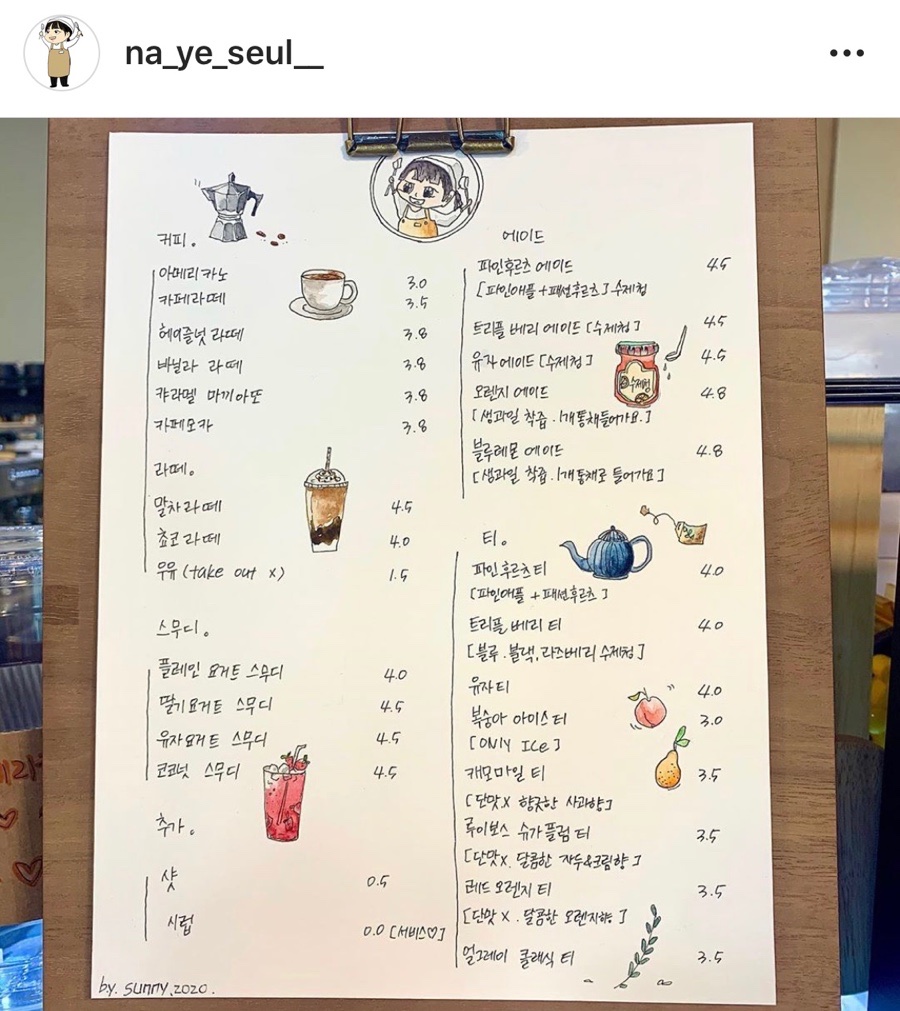 na_ye_seul__
커피。
아메리카노 3.0
카페라떼 3.5
헤이즐넛 라떼 3.8
바닐라 라떼 3.8
캬라멜 마끼아또 3.8
카페모카 3.8
라떼。
말차라떼 4.5
쵸코라떼 4.0
우유 (take out x) 1.5
스무디。
플레인 요거트 스무디 4.0
딸기요거트 스무디 4.5
유자요거트 스무디 4.5
코코넛 스무디 4.5
추가。
샷 0.5
시럽 0.0 [서비스♡]
by. sunny.2020.
에이드
파인후르츠 에이드 4.5
[파인애플+패션후르츠] 수제청
트리플 베리 에이드 [수제청] 4.5
유자에이드 [수제청] 4.5
수제청
오렌지 에이드 4.8
[생과일 착즙.1개통채들어가요.]
블루레몬 에이드 4.8
[생과일 착즙.1개통채로 들어가요]
티。
파인후르츠티 4.0
[파인애플 + 패션후르츠]
트리플 베리 티 4.0
[블루.블랙,라즈베리 수제청]
유자티 4.0
복숭아 아이스티 3.0
[ONLY Ice]
캐모마일 티 3.5
[단맛x 향긋한 사과향]
루이보스 슈가플럼 티 3.5
[단맛x. 달콤한 자두&크림향]
레드 오렌지 티 3.5
[단맛x. 달콤한 오렌지향]
얼그레이 클래식 티 3.5